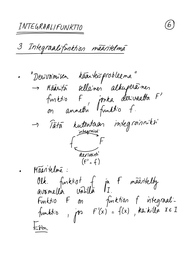 INTEGRAALIFUNKTIO
6
3 Integraalifunktion määritelmä
• "Derivoimisen käänteisprobleema"
→ Määritä sellainen alkuperäinen
funktio F, jonka derivaatta F'
on annettu funktio f.
→ Tätä kutsutaan integroinniksi
integrointi
F f
derivointi
(F' = f)
• Määritelmä:
Olk. funktiot f ja F määritelty
avoimella välillä I
Funktio F on funktion f integraali-
funktio, jos F'(x) = f(x), kaikilla x ∈ I